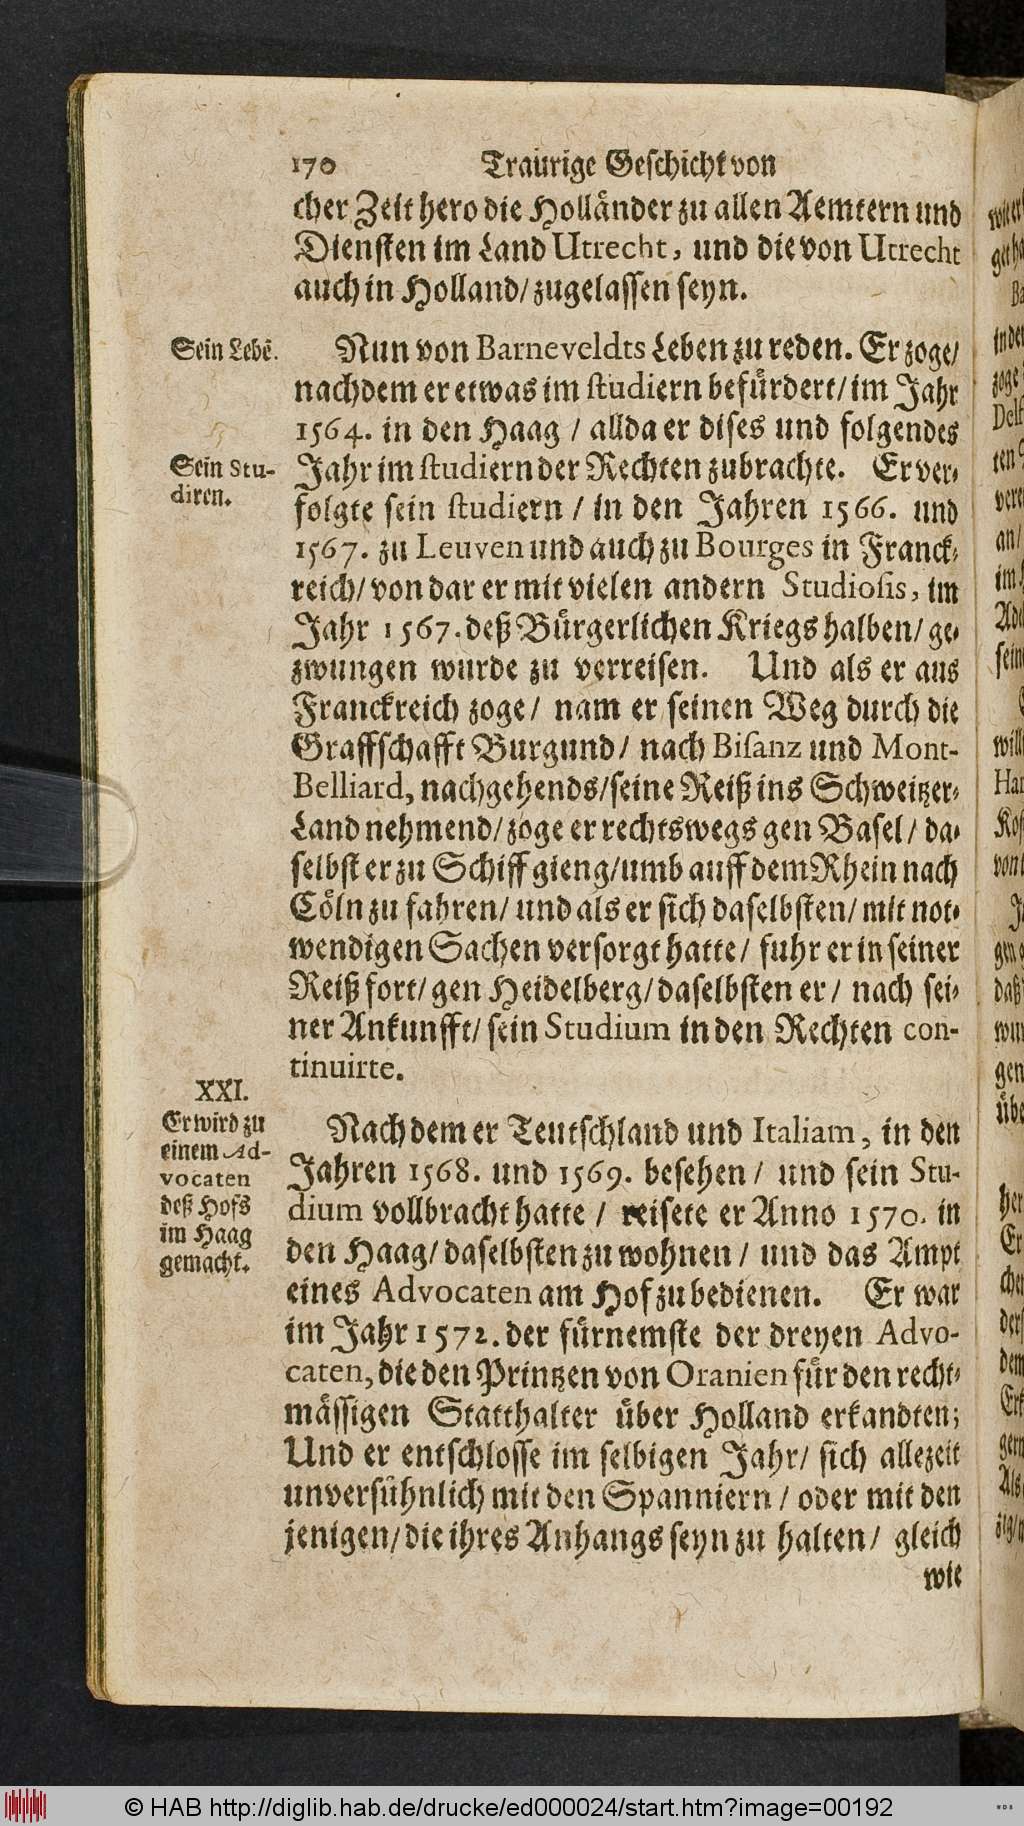 170 Traurige Geschicht von
cher Zeit hero die Holländer zu allen Aemtern und
Diensten im Land Utrecht, und die von Utrecht
auch in Holland/ zugelassen seyn.
Sein Lebē.
Nun von Barneveldts Leben zu reden. Er zoge/
nachdem er etwas im studiern befürdert/ im Jahr
1564. in den Haag / allda er dises und folgendes
Sein Stu-
diren.
Jahr im studiern der Rechten zubrachte. Er ver-
folgte sein studiern / in den Jahren 1566. und
1567. zu Leuven und auch zu Bourges in Franck-
reich/ von dar er mit vielen andern Studiosis, im
Jahr 1567. deß Bürgerlichen Kriegs halben/ ge-
zwungen wurde zu verreisen. Und als er aus
Franckreich zoge/ nam er seinen Weg durch die
Graffschafft Burgund/ nach Bisanz und Mont-
Belliard, nachgehends/ seine Reiß ins Schweitzer-
Land nehmend/ zoge er rechtswegs gen Basel/ da-
selbst er zu Schiff gieng/ umb auff dem Rhein nach
Cöln zu fahren/ und als er sich daselbsten/ mit not-
wendigen Sachen versorgt hatte/ fuhr er in seiner
Reiß fort/ gen Heidelberg/ daselbsten er/ nach sei-
ner Ankunfft/ sein Studium in den Rechten con-
tinuirte.
XXI.
Er wird zu
einem Ad-
vocaten
deß Hofs
im Haag
gemacht.
Nach dem er Teutschland und Italiam, in den
Jahren 1568. und 1569. besehen/ und sein Stu-
dium vollbracht hatte / reisete er Anno 1570. in
den Haag/ daselbsten zu wohnen/ und das Ampt
eines Advocaten am Hof zu bedienen. Er war
im Jahr 1572. der fürnemste der dreyen Advo-
caten, die den Printzen von Oranien für den recht-
mässigen Statthalter über Holland erkandten;
Und er entschlosse im selbigen Jahr/ sich allezeit
unversühnlich mit den Spanniern / oder mit den
jenigen/ die ihres Anhangs seyn zu halten/ gleich
wie
© HAB http://diglib.hab.de/drucke/ed000024/start.htm?image=00192